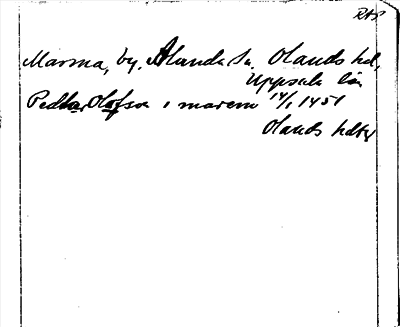 RAP
Marma, by. Alunda Sn. Olands hd,
Uppsala län
Pedhar Olofson i marem 14/1 1451
Olands hdtg